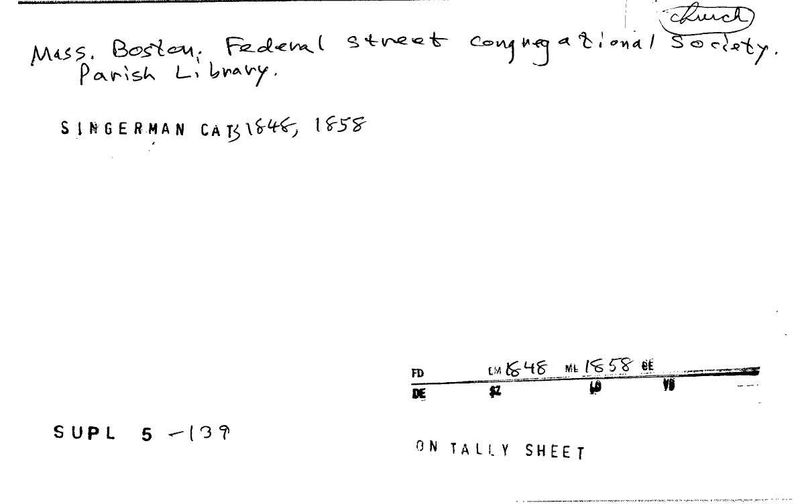 church
Mass. Boston. Federal Street Congregational Society.
Parish Library.
SINGERMAN CATS 1848, 1858
FD EM 1848 ML 1858 BE
DE SZ LO YB
SUPL 5 -139
ON TALLY SHEET